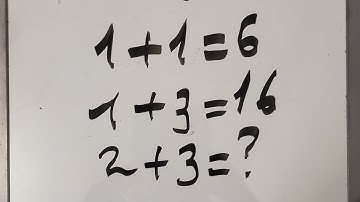 1+1=6
1+3=16
2+3=?